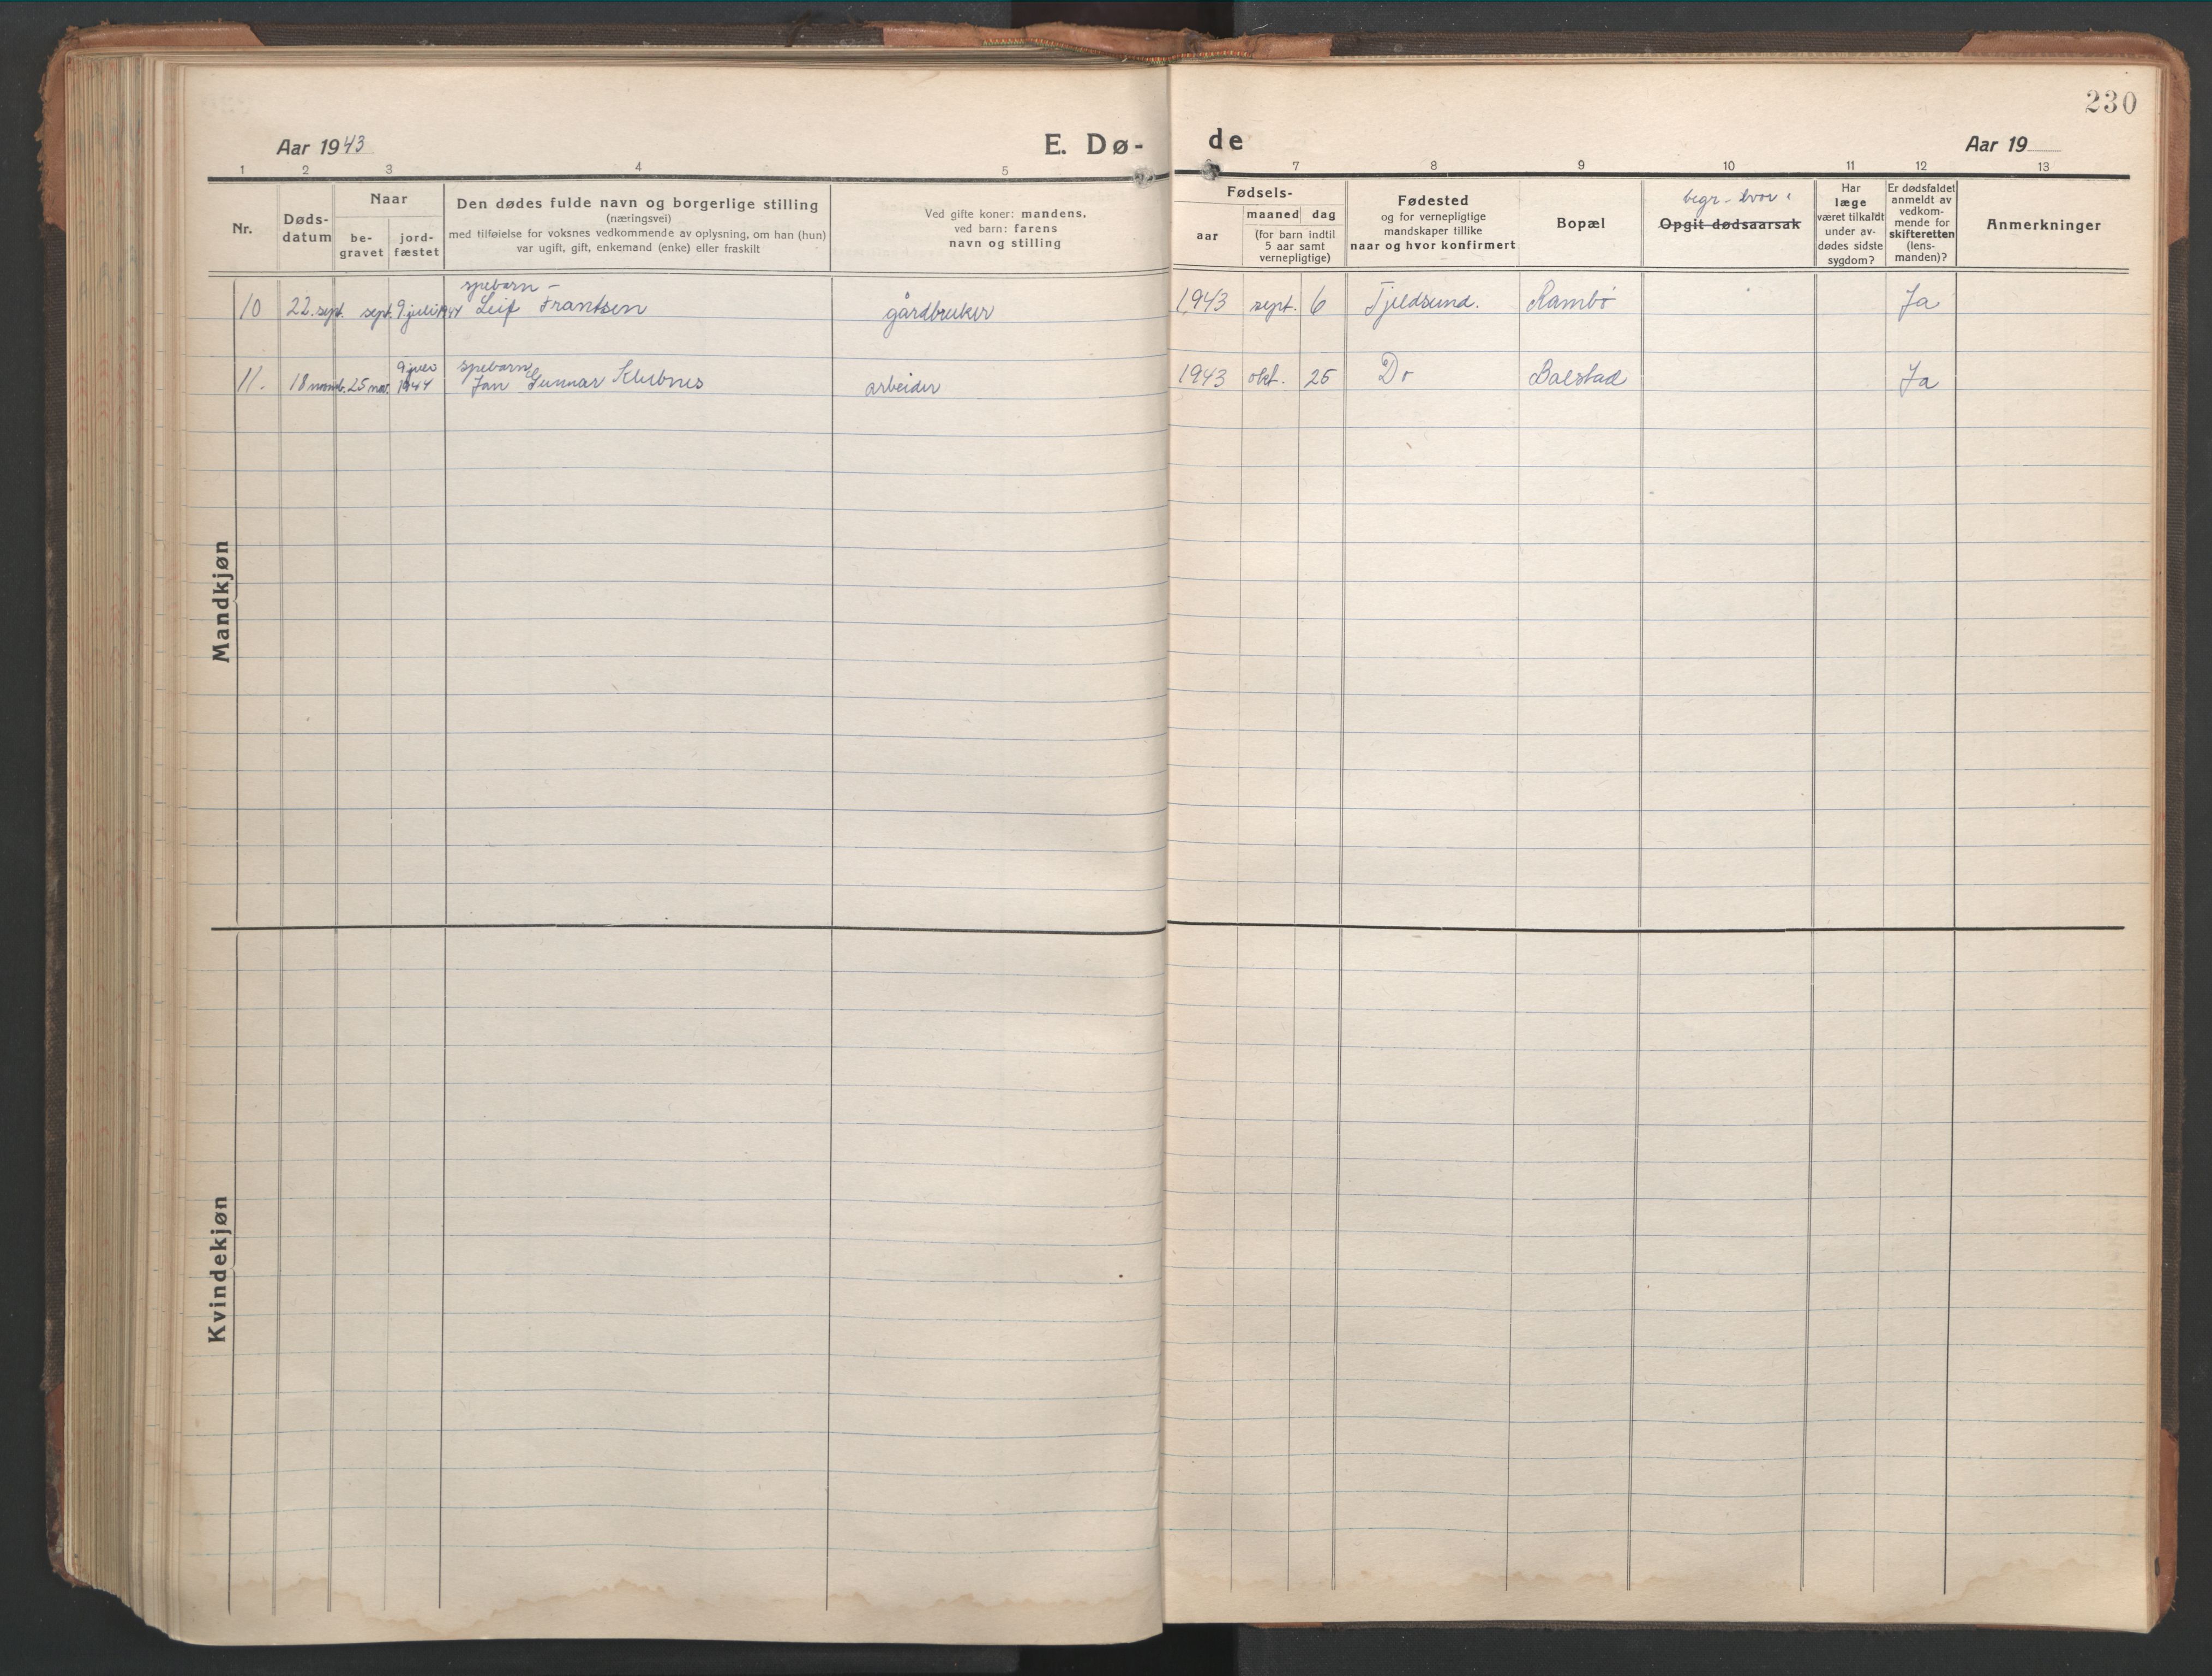 230
Aar 1943
E. Dø-
de
Aar 19
1 2 3 4 5 6 7 8 9 10 11 12 13
Nr.
Døds-
datum
Naar
be-
gravet
jord-
fæstet
Den dødes fulde navn og borgerlige stilling
(næringsvei)
med tilføielse for voksnes vedkommende av oplysning, om han (hun)
var ugift, gift, enkemand (enke) eller fraskilt
Ved gifte koner: mandens,
ved barn: farens
navn og stilling
Fødsels-
aar
maaned
dag
(for barn indtil
5 aar samt
vernepligtige)
Fødested
og for vernepligtige
mandskaper tillike
naar og hvor konfirmert
Bopæl
begr. hvor
Opgit dødsaarsak
Har
læge
været tilkaldt
under av-
dødes sidste
sygdom?
Er dødsfaldet
anmeldt av
vedkom-
mende for
skifteretten
(lens-
manden)?
Anmerkninger
Mandkjøn
spebarn -
10 22. sept. sept. 9 juli 1944 Leif Frantsen gårdbruker 1943 sept. 6 Tjeldsund. Rambø Ja
9 juli spebarn
11. 18 novemb. 25 nov. 1944 Jan Gunnar Klubnes arbeider 1943 okt. 25 Do Balstad Ja
Kvindekjøn